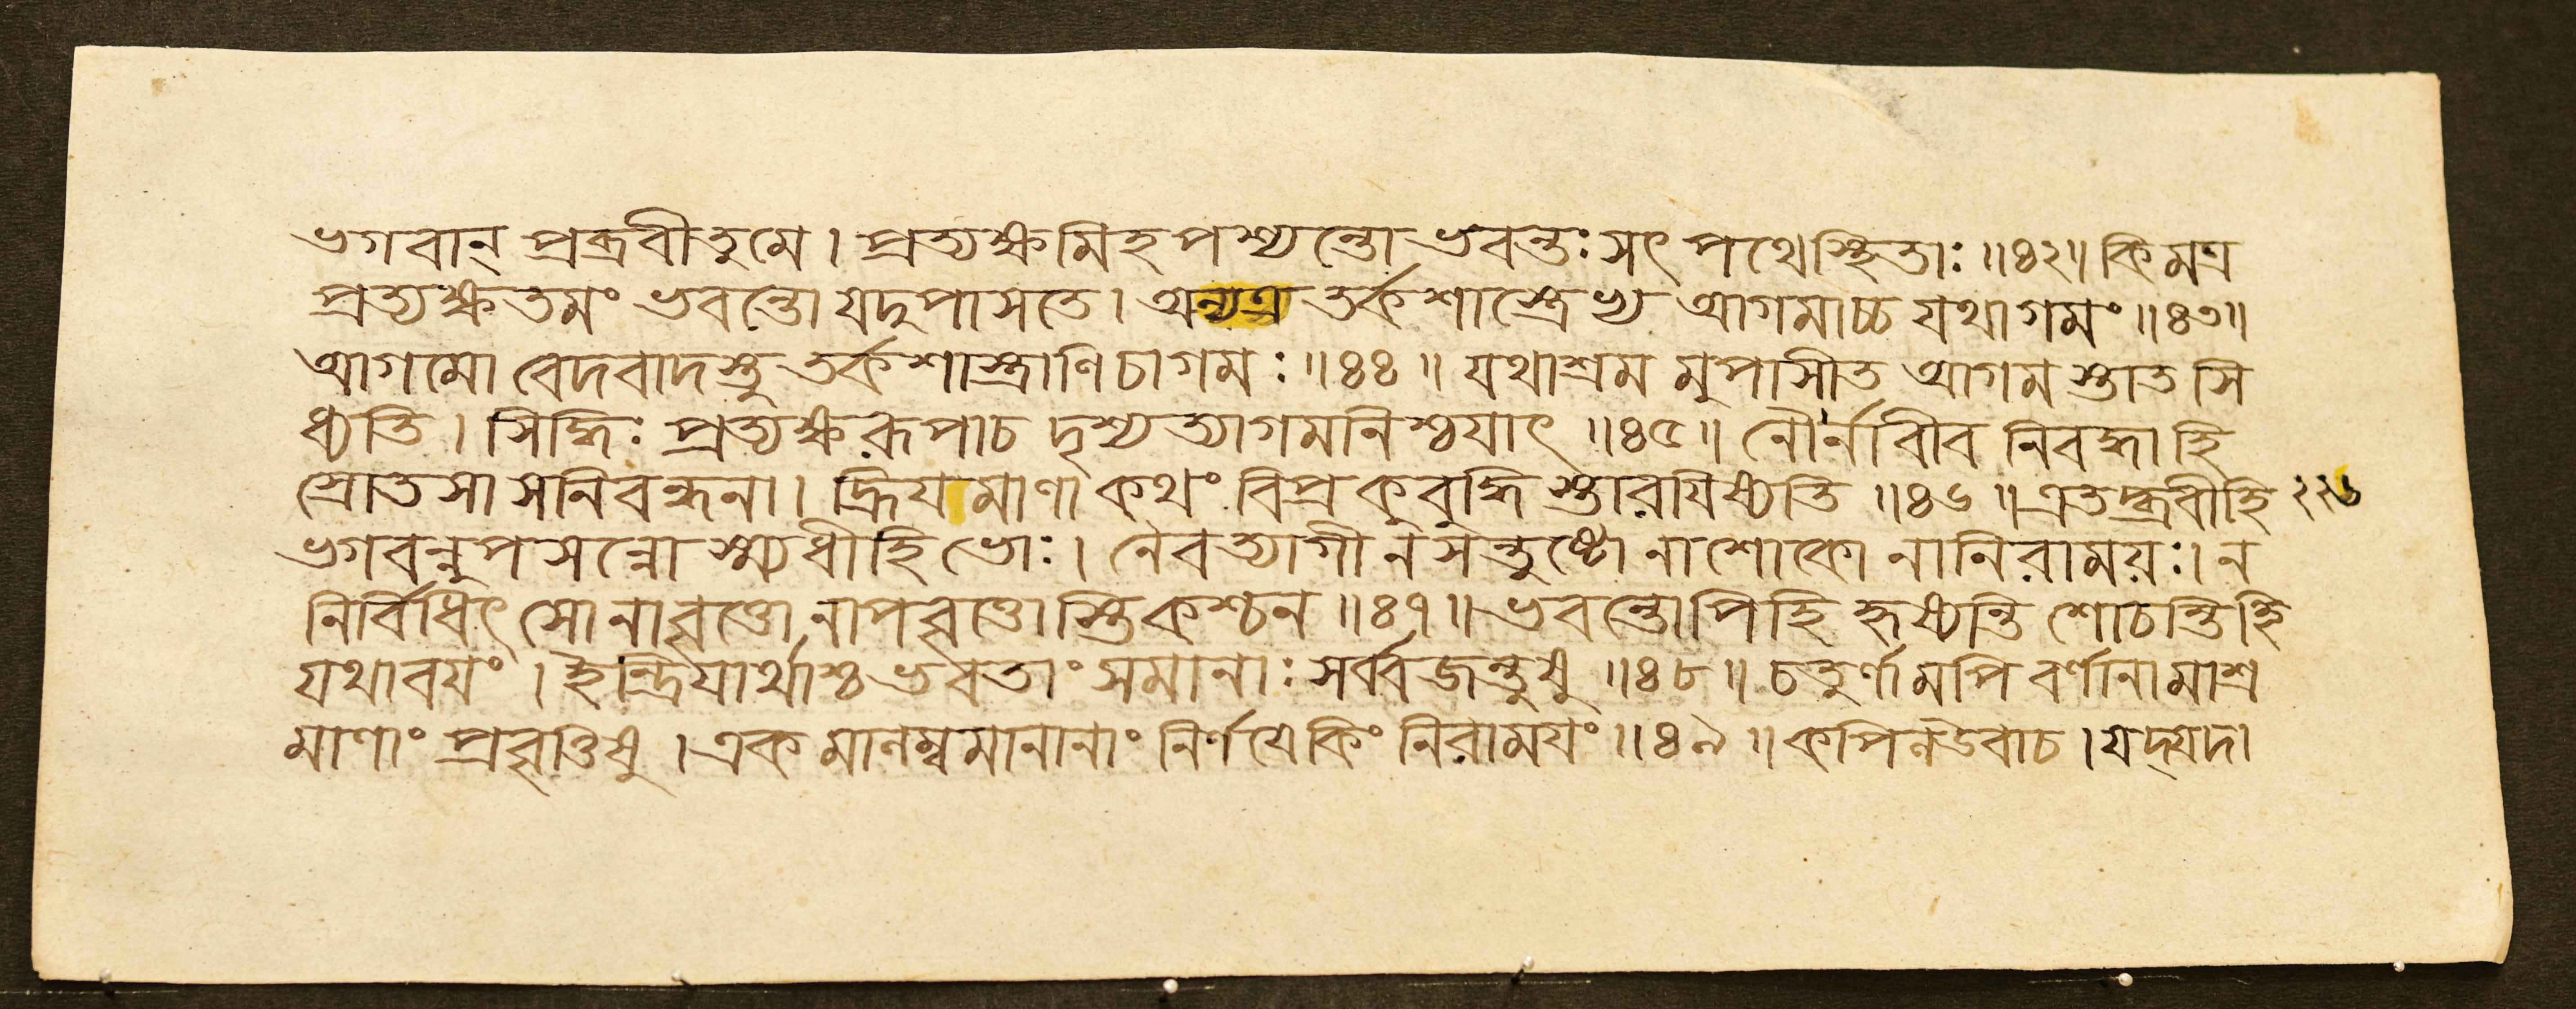 ভগবান্ প্রব্রবীতুমে। প্রত্যক্ষমিহপশ্যন্তো ভবন্তঃসৎ পথেস্থিতাঃ॥৪২॥ কিমত্র
প্রত্যক্ষতমং ভবন্তো যদুপাসতে। অন্যত্র তর্কশাস্ত্রেভ্য আগমাচ্চ যথাগমং॥৪৩॥
আগমো বেদবাদস্তু তর্কশাস্ত্রাণিচাগমঃ॥৪৪॥ যথাশ্রম মুপাসীত আগম স্তাত সি
ধ্যতি। সিদ্ধিঃ প্রত্যক্ষরূপাচ দৃশ্যত্যাগমনিশ্চযাৎ॥৪৫॥ নৌর্নাবীব নিবদ্ধাহি
স্রোতসা সনিবন্ধনা। হ্রিযমাণা কথং বিপ্রকুবুদ্ধি স্তারযিষ্যতি॥৪৬॥এতদ্ব্রবীহি ২২৬
ভগবন্নুপসন্নো স্ম্যধীহিভোঃ। নৈবত্যাগী নসন্তুষ্টো নাশোকো নানিরাময়ঃ। ন
নির্বিধিৎ সোনাবৃত্তো নাপবৃত্তোস্তিকশ্চন॥৪৭॥ভবন্তোপিহি হৃষ্যন্তি শোচন্তিহি
যথাবযং। ইন্দ্রিযার্থাশ্চ ভবতাং সমানাঃ সর্ব্বজন্তুষু॥৪৮॥ চতুর্ণামপি বর্ণানামাশ্র
মাণাং প্রবৃত্তিষু। একমালম্বমানানাং নির্ণযেকিং নিরাময়ং॥৪৯॥ কপিলউবাচ। যদ্যদা